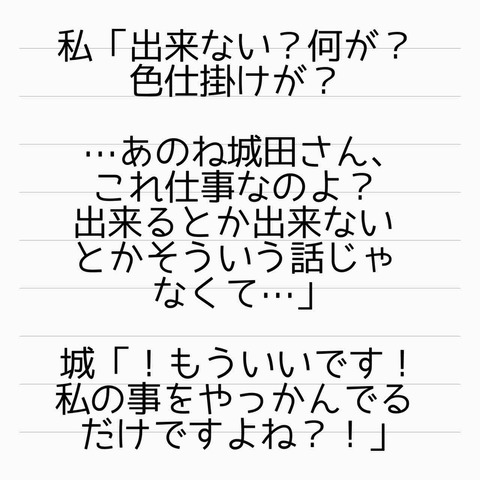 私「出来ない？何が？
色仕掛けが？
…あのね城田さん、
これ仕事なのよ？
出来るとか出来ない
とかそういう話じゃ
なくて…」
城「！もういいです！
私の事をやっかんでる
だけですよね？！」